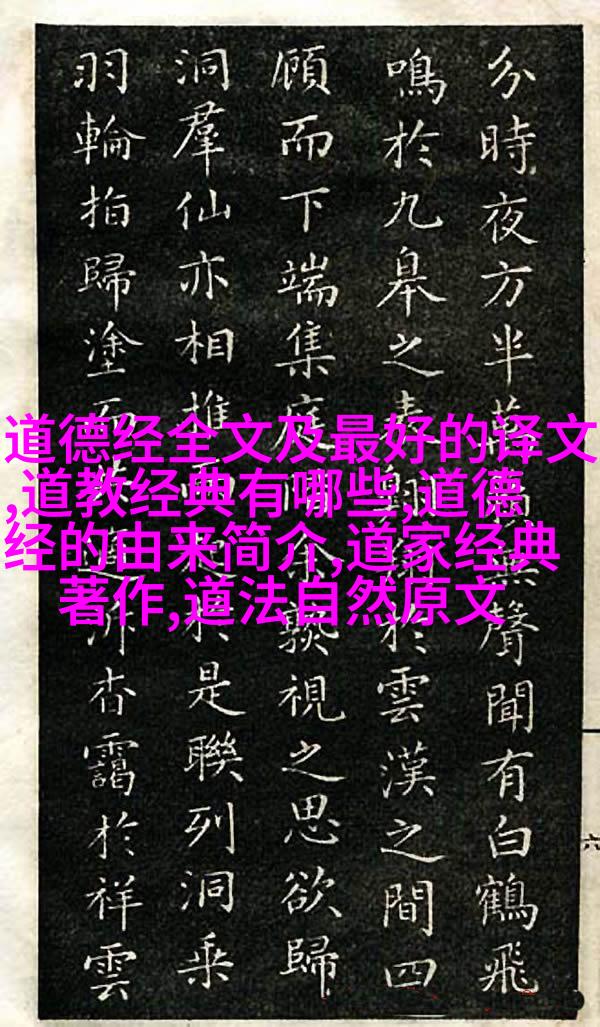 分時夜方半萬無聲聞有白鶴飛
鳴於九皋之表於雲漢之間四
顧而下端集庭余孰視之思欲歸
洞羣仙亦相推而於是聯列洞乘
羽輪拍歸塗而杳靄於祥雲
六
道德经全文及最好的译文
,道教经典有哪些,道德
经的由来简介,道家经典
著作,道法自然原文